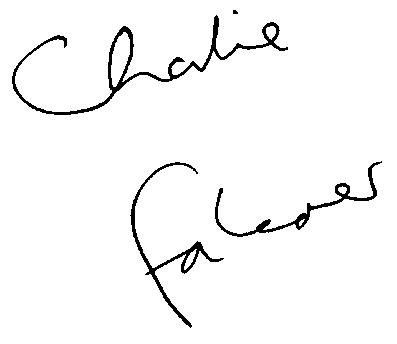 Charlie
Falconer